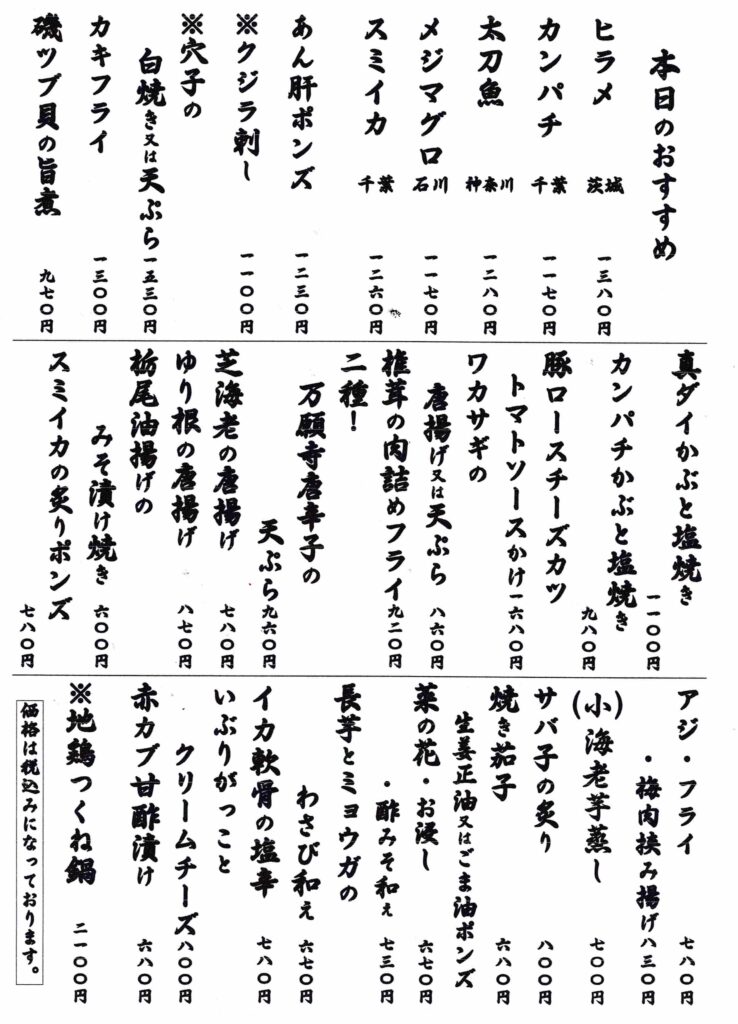 本日のおすすめ
ヒラメ 茨城 一三八〇円
カンパチ 千葉 一一七〇円
太刀魚 神奈川 一二八〇円
メジマグロ 石川 一一七〇円
スミイカ 千葉 一二六〇円
あん肝ポンズ 一二三〇円
※クジラ刺し 一一〇〇円
※穴子の
白焼き又は天ぷら 一五三〇円
カキフライ 一三〇〇円
磯ツブ貝の旨煮 九七〇円
真ダイかぶと塩焼き 一一〇〇円
カンパチかぶと塩焼き 九八〇円
豚ロースチーズカツ
トマトソースかけ 一六八〇円
ワカサギの
唐揚げ又は天ぷら 八六〇円
椎茸の肉詰めフライ 九二〇円
二種！
万願寺唐辛子の
天ぷら 九六〇円
芝海老の唐揚げ 七八〇円
ゆり根の唐揚げ 八七〇円
栃尾油揚げの
みそ漬け焼き 六〇〇円
スミイカの炙りポンズ 七八〇円
アジ・フライ 七八〇円
・梅肉挟み揚げ 八三〇円
(小)海老芋蒸し 七〇〇円
サバ子の炙り 八〇〇円
焼き茄子 六八〇円
生姜正油又はごま油ポンズ
菜の花・お浸し 六七〇円
・酢みそ和え 七三〇円
長芋とミョウガの
わさび和え 六七〇円
イカ軟骨の塩辛 七八〇円
いぶりがっこと
クリームチーズ 八〇〇円
赤カブ甘酢漬け 六八〇円
※地鶏つくね鍋 二一〇〇円
価格は税込みになっております。